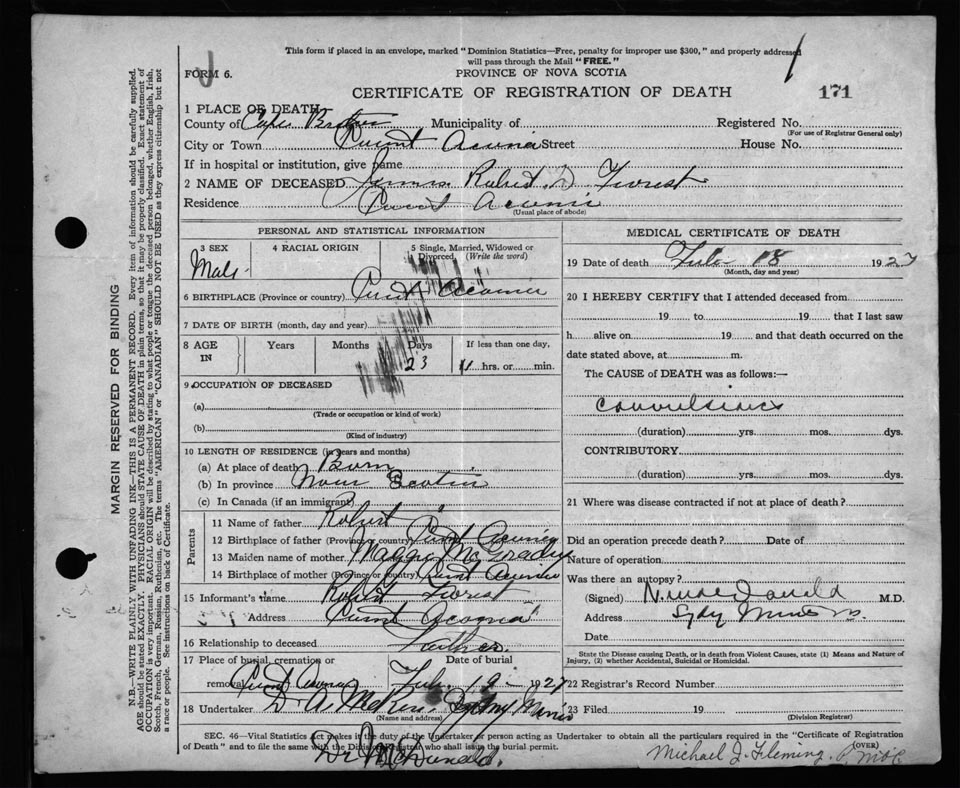 This form if placed in an envelope, marked "Dominion Statistics—Free, penalty for improper use $300," and properly addressed
will pass through the Mail "FREE."
FORM 6.
PROVINCE OF NOVA SCOTIA
CERTIFICATE OF REGISTRATION OF DEATH
171
1 PLACE OF DEATH
County of Cape Breton Municipality of Registered No.
(For use of Registrar General only)
City or Town Point Aconi Street House No.
If in hospital or institution, give name
2 NAME OF DECEASED James Robert Forest
Residence Point Aconi
(Usual place of abode)
PERSONAL AND STATISTICAL INFORMATION
3 SEX 4 RACIAL ORIGIN 5 Single, Married, Widowed or Divorced. (Write the word)
Male
6 BIRTHPLACE (Province or country) Point Aconi
7 DATE OF BIRTH (month, day and year)
8 AGE IN Years Months Days If less than one day,
23 11 hrs. or min.
9 OCCUPATION OF DECEASED
(a)
(Trade or occupation or kind of work)
(b)
(Kind of industry)
10 LENGTH OF RESIDENCE (in years and months)
(a) At place of death Born
(b) In province Nova Scotia
(c) In Canada (if an immigrant)
Parents
11 Name of father Robert "
12 Birthplace of father (Province or country) Point Aconi
13 Maiden name of mother Maggie
14 Birthplace of mother (Province or country) Point Aconi
15 Informant's name Robert Forest
Address Point Aconi
16 Relationship to deceased Father.
17 Place of burial, cremation or removal Date of burial
Point Aconi 19 - 1927
18 Undertaker D A Sydney Mines
(Name and address)
MEDICAL CERTIFICATE OF DEATH
19 Date of death 18 1927
(Month, day and year)
20 I HEREBY CERTIFY that I attended deceased from
19 to 19 that I last saw
h alive on 19 and that death occurred on the
date stated above, at m.
The CAUSE of DEATH was as follows:—
Convulsions
(duration) yrs. mos. dys.
CONTRIBUTORY
(duration) yrs. mos. dys.
21 Where was disease contracted if not at place of death?
Did an operation precede death? Date of
Nature of operation
Was there an autopsy?
(Signed) M.D.
Address Sydy Mines
Date
State the Disease causing Death, or in death from Violent Causes, state (1) Means and Nature of
Injury, (2) whether Accidental, Suicidal or Homicidal.
22 Registrar's Record Number
23 Filed 19
(Division Registrar)
SEC. 46—Vital Statistics Act makes it the duty of the Undertaker or person acting as Undertaker to obtain all the particulars required in the "Certificate of Registration
of Death" and to file the same with the Division Registrar who shall issue the burial permit.
(OVER)
Dr McDonald.
Michael J. Fleming.
MARGIN RESERVED FOR BINDING
N.B.—WRITE PLAINLY WITH UNFADING INK—THIS IS A PERMANENT RECORD. Every item of information should be carefully supplied.
AGE should be stated EXACTLY. PHYSICIANS should STATE CAUSE OF DEATH in plain terms, so that it may be properly classified. Exact statement of
OCCUPATION is very important. RACIAL ORIGIN will be described by stating to what people or tongue the deceased person belonged, whether English, Irish,
Scotch, French, German, Russian, Ruthenian, etc. The terms "AMERICAN" or "CANADIAN" SHOULD NOT BE USED as they express citizenship but not
a race or people. See instructions on back of Certificate.